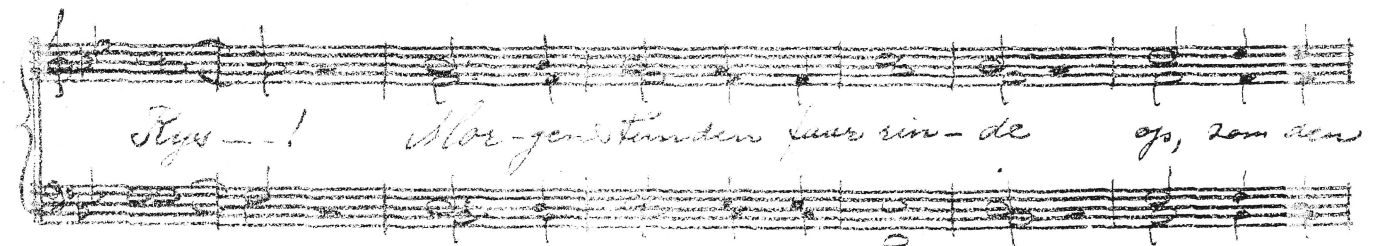 Rys - - ! Mor-genstunden luur rin-de op, som den